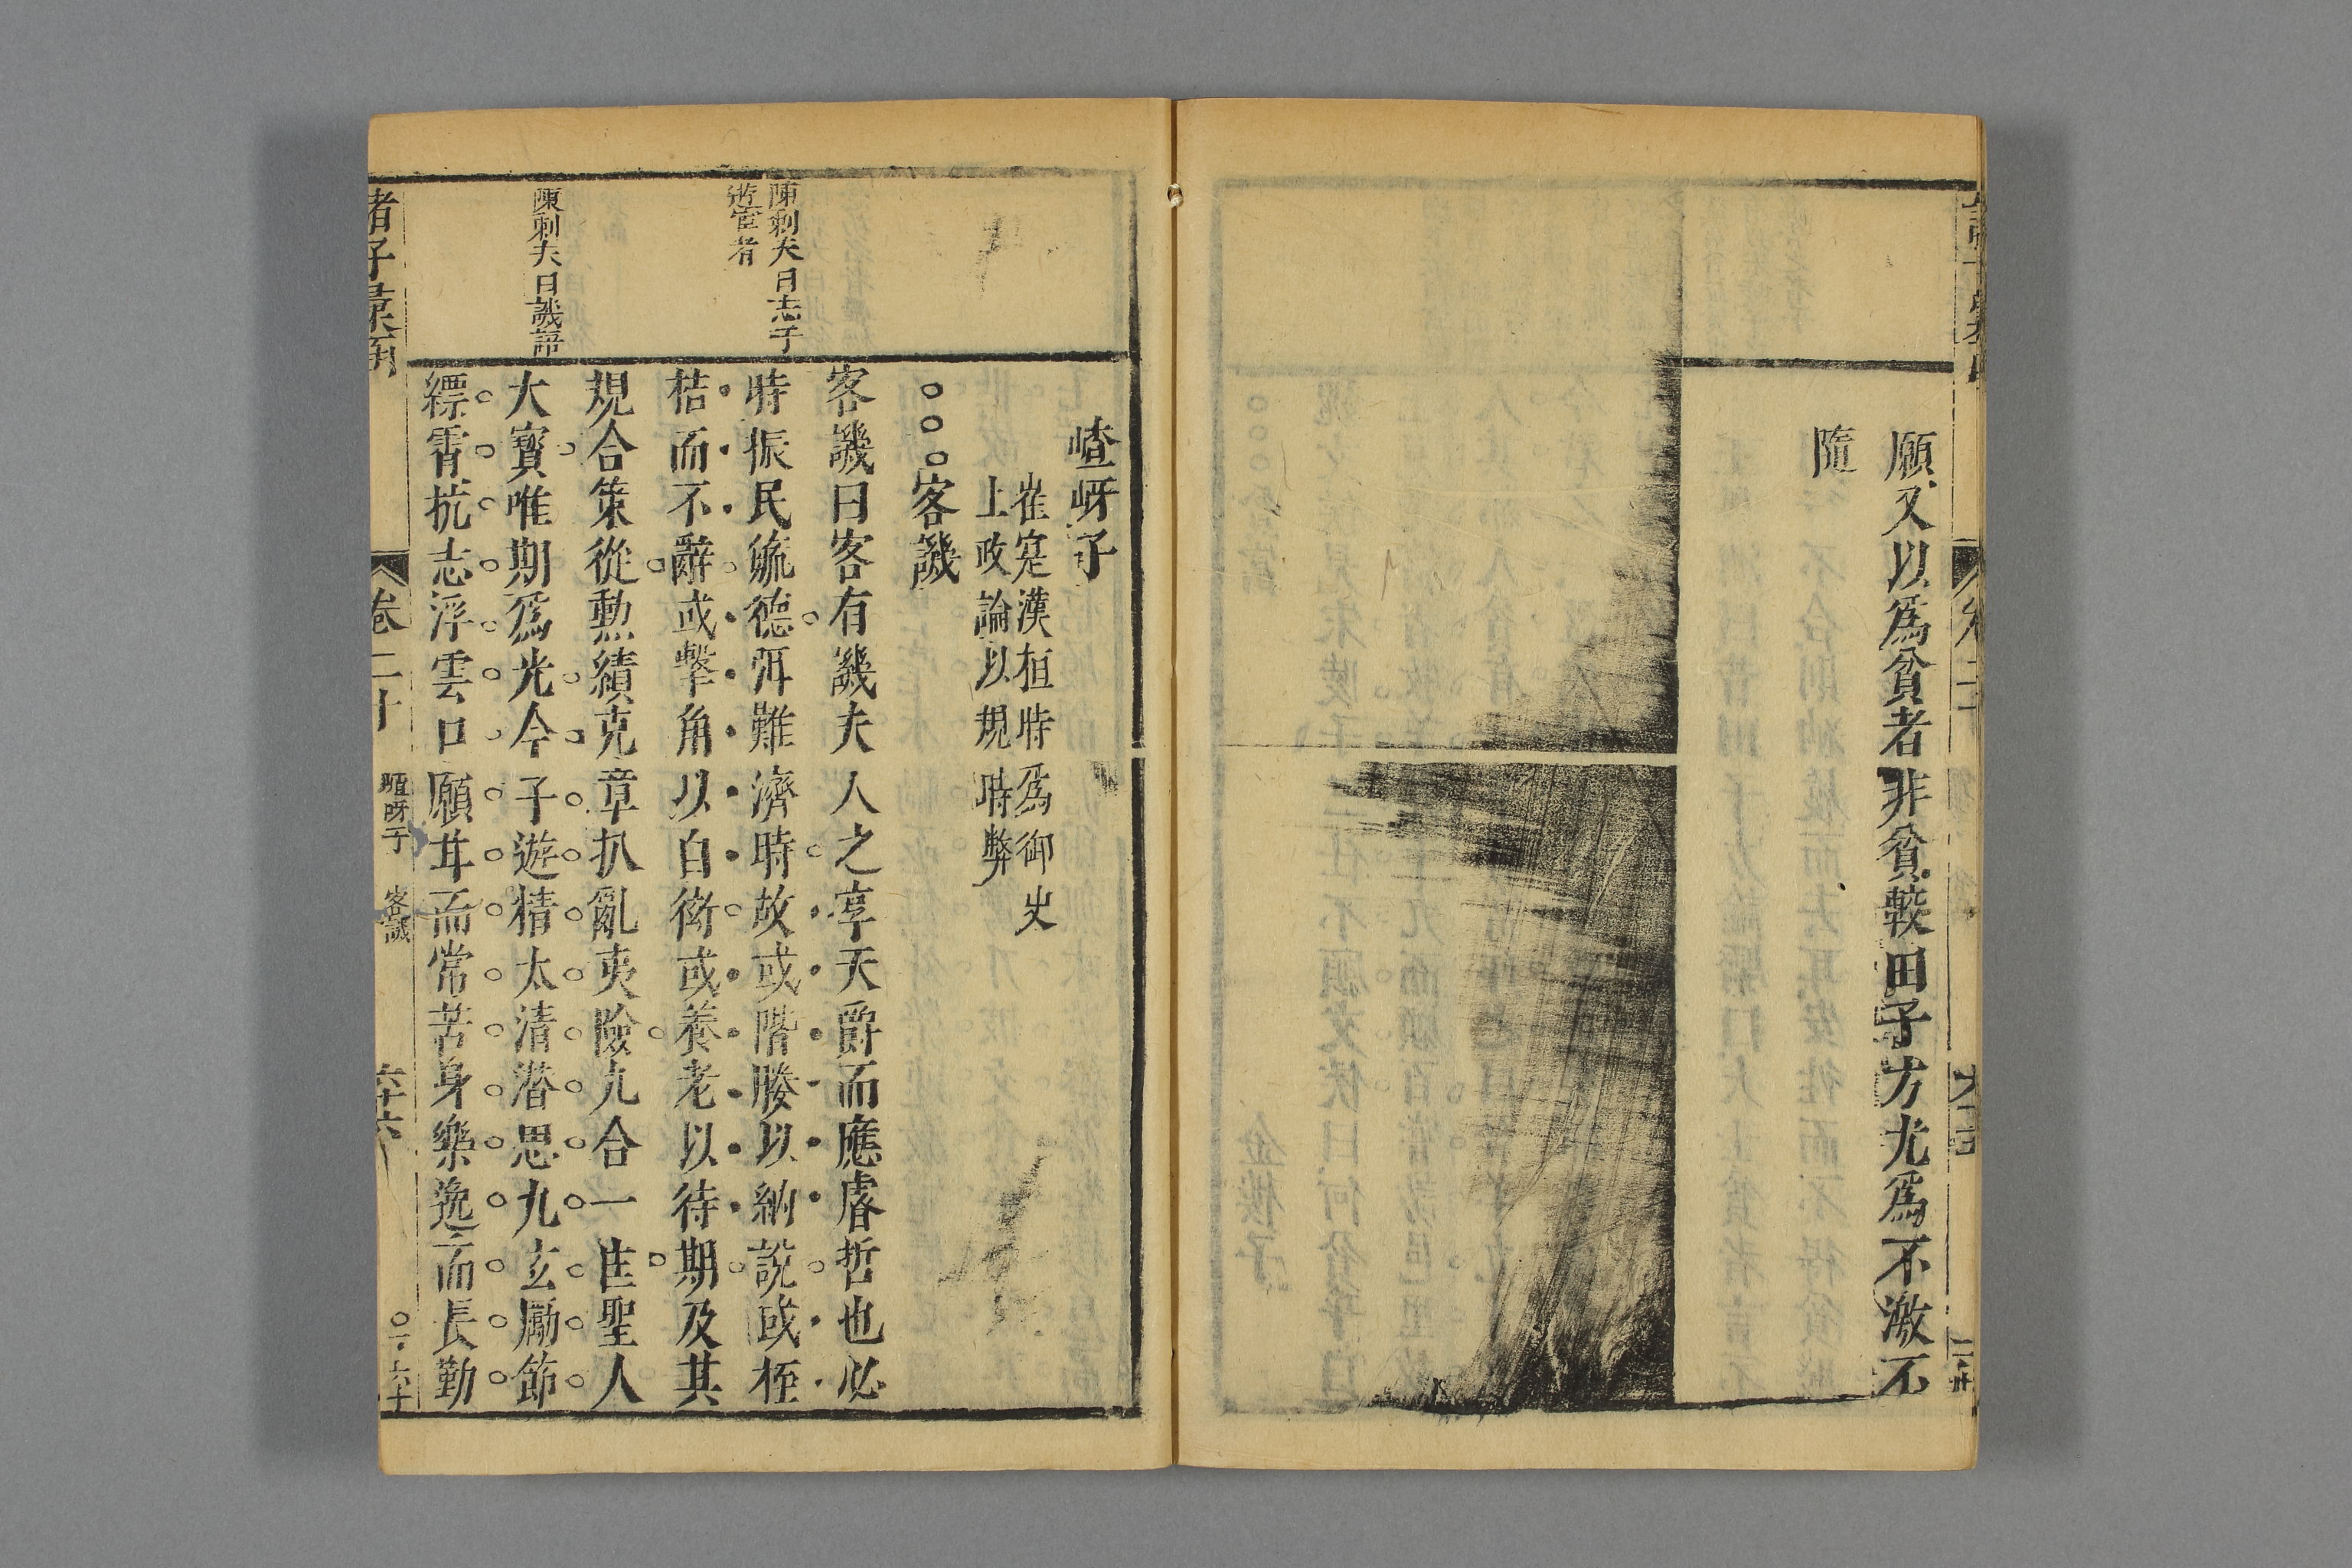 願又以爲貧者非貧較田子方尤爲不激不
隨
嵖岈子
崔寔漢桓時爲御史
上政論以規時弊
客譏
客譏曰客有譏夫人之享天爵而應睿哲也必
時振民毓德弭難濟時故或階媵以納說或桎
梏而不辭或擊角以自衒或養老以待期及其
規合策從勲績克章扒亂夷險九合一匡聖人
大寶唯期爲光今子遊精太清潛思九玄勵節
縹霄抗志浮雲口願甘而常苦身樂逸而長勤
陳剌夫曰志于
遊宦者
陳剌夫曰譏語
諸子彙函
卷二十
嵖岈子
客譏
六十六